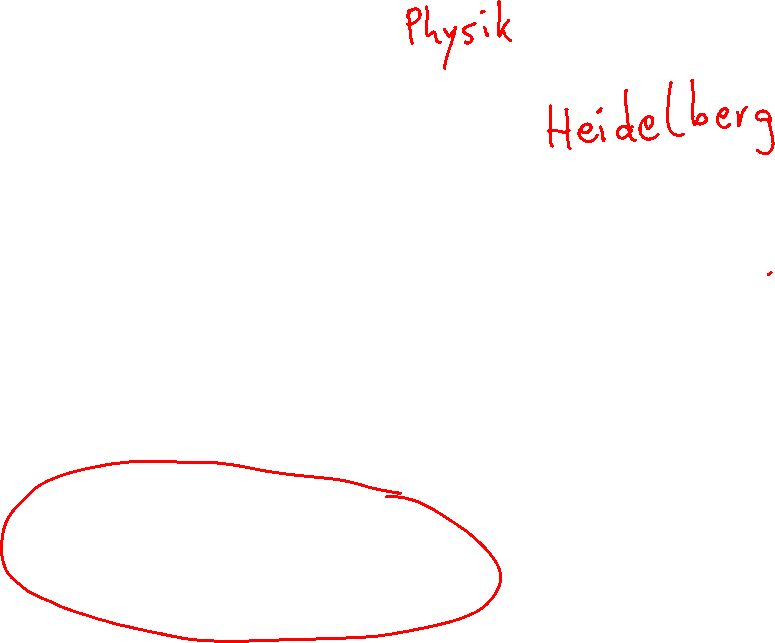 Physik
Heidelberg